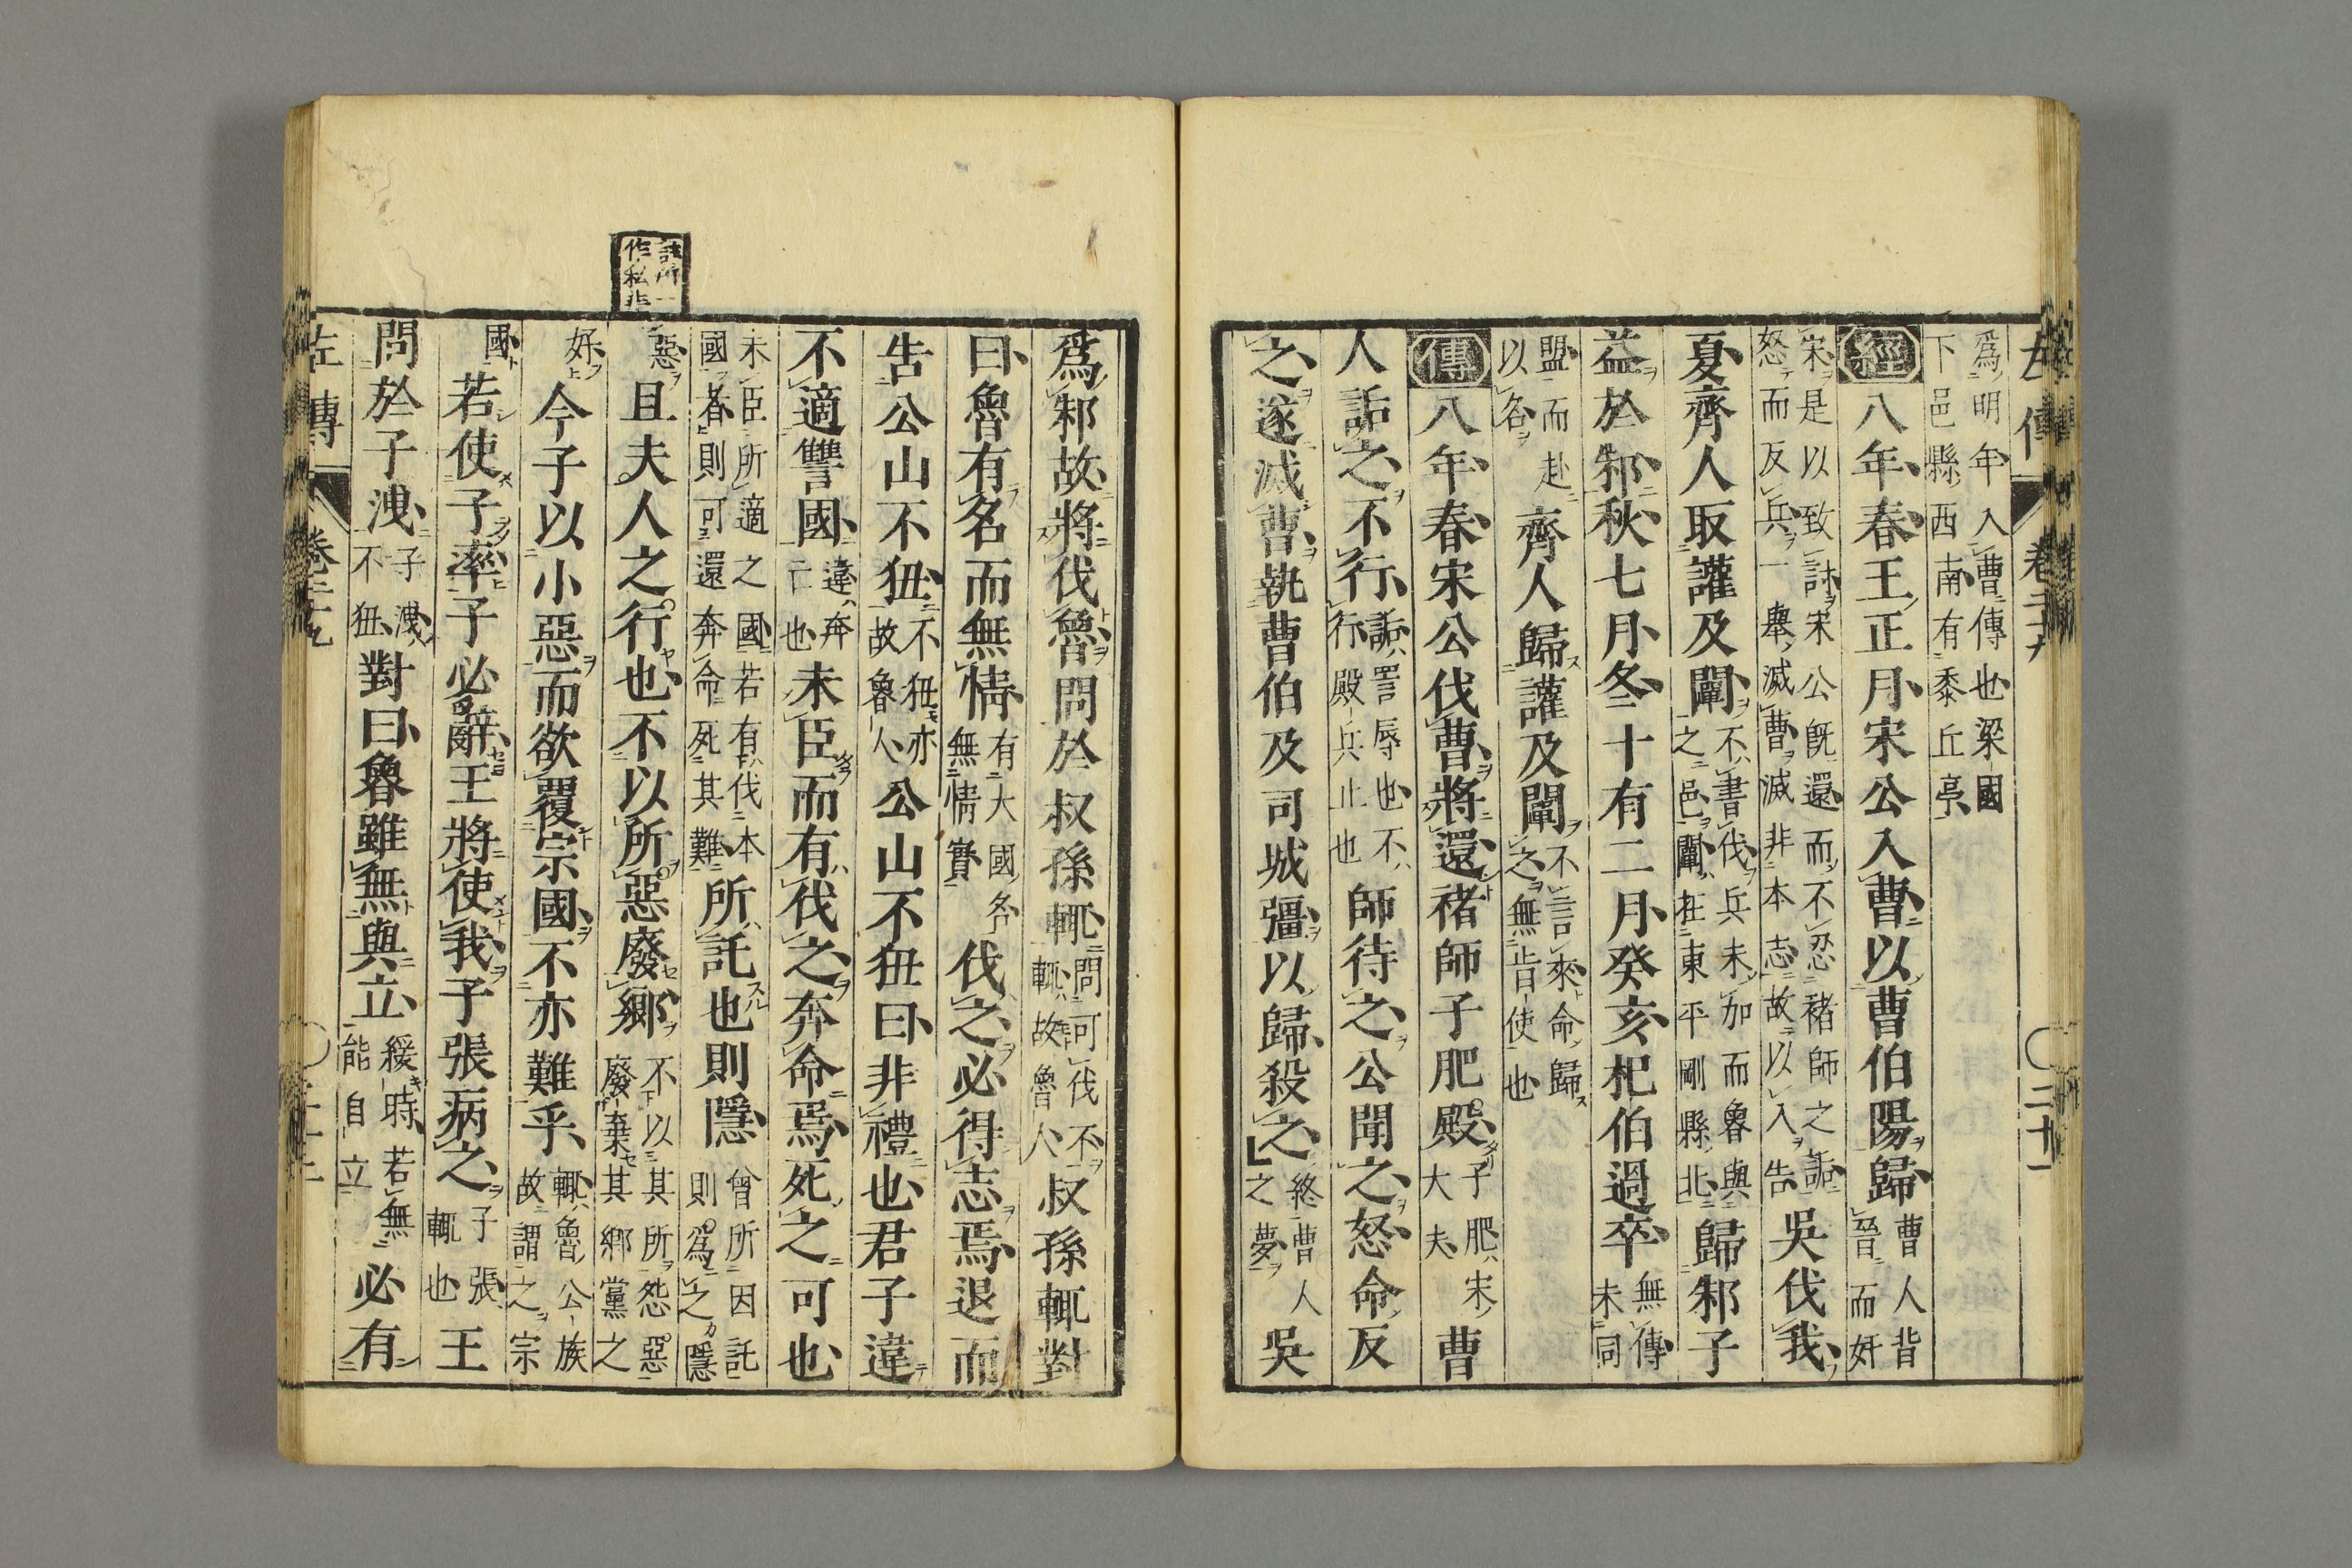 左傳 卷二十九 三十一
爲明年入曹傳也梁國下邑縣西南有黍丘亭
經八年春王正月宋公入曹以曹伯陽歸曹人背晉而奸
宋是以致討宋公旣還而不忍褚師之詬怒而反兵一舉滅曹滅非本志故以入告吳伐我
夏齊人取讙及闡不書伐兵未加而魯與之邑闡在東平剛縣北歸邾子
益於邾秋七月冬十有二月癸亥杞伯過卒無傳未同
盟而赴以名齊人歸讙及闡不言來命歸之無旨使也
傳八年春宋公伐曹將還褚師子肥殿子肥宋大夫曹
人詬之不行詬詈辱也不行殿兵止也師待之公聞之怒命反
之遂滅曹執曹伯及司城彊以歸殺之終曹人之夢吳
爲邾故將伐魯問於叔孫輒問可伐不輒故魯人叔孫輒對
曰魯有名而無情有大國名無情實伐之必得志焉退而
告公山不狃不狃亦故魯人公山不狃曰非禮也君子違
不適讐國違奔亡也未臣而有伐之奔命焉死之可也
未臣所適之國若有伐本國者則可還奔命死其難所託也則隱曾所因託則爲之隱
註所一作私非
惡且夫人之行也不以所惡廢鄉不以其所怨惡廢棄其鄉黨之
好今子以小惡而欲覆宗國不亦難乎輒魯公族故謂之宗
國若使子率子必辭王將使我子張病之子張輒也王
問於子洩子洩不狃對曰魯雖無與立緩時若無能自立必有
左傳 卷二十九